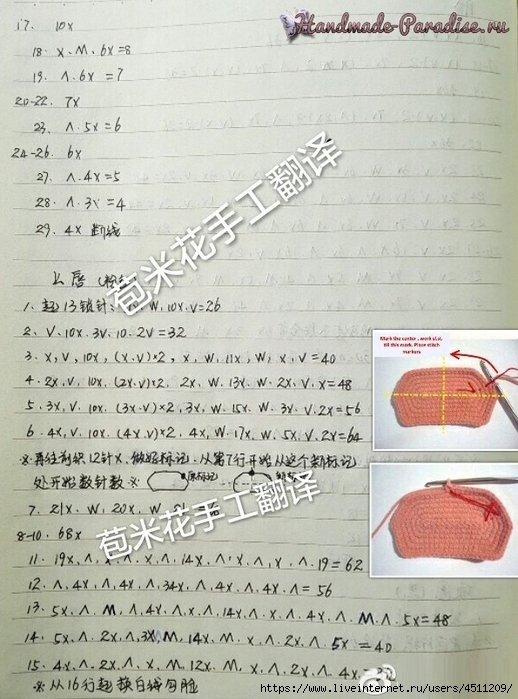 Handmade-Paradise.ru
17. 10X
18. X. M. 6X = 8
19. Λ. 6X = 7
20-22. 7X
23. Λ. 5X = 6
24-26. 6X
27. Λ. 4X = 5
28. Λ. 3X = 4
29. 4X 断线
苞米花手工翻译
上唇
1. 起13锁针, W. 10X. V = 26
2. V. 10X. 3V. 10. 2V = 32
3. X, V, 10X, (X.V)×2, X, W, 11X, W, X, V = 40
4. 2X, V, 10X, (2X.V)×2, 2X, W. 13X. W. 2X, V, X = 48
5. 3X, V. 10X. (3X.V)×2, 3X, W. 15X. W. 3X. V. 2X = 56
6. 4X, V, 10X (4X.V)×2, 4X, W. 17X, W. 5X, V. 2X = 64
※ 再往前织12针X, 做好标记, 从第7行开始从这个新标记
处开始数针数 ※ 原标记 新标记
7. 21X, W, 20X, W
8-10. 68X
11. 19X, Λ, X, Λ, X, Λ, 14X, Λ, X, Λ, X, Λ, 19 = 62
12. Λ. 4X, Λ, 4X, Λ, 34X, Λ, 4X, Λ, 4X, Λ = 56
13. 5X, Λ, M, Λ, 4X, Λ, X, Λ, 14X, Λ, X, Λ, 4X, Λ, M, Λ, 5X = 48
14. 5X, Λ, 2X, Λ, 3X, M, 14X, M, X, Λ, 2X, Λ, 5X = 40
15. 4X, Λ, 2X, M, 12X. M, X, Λ, 2X, Λ, 4X
※ 从16行起换白线勾脸
苞米花手工翻译
Mark the center, work sl.st.
till this mark. Place stitch
markers
https://www.liveinternet.ru/users/4511209/